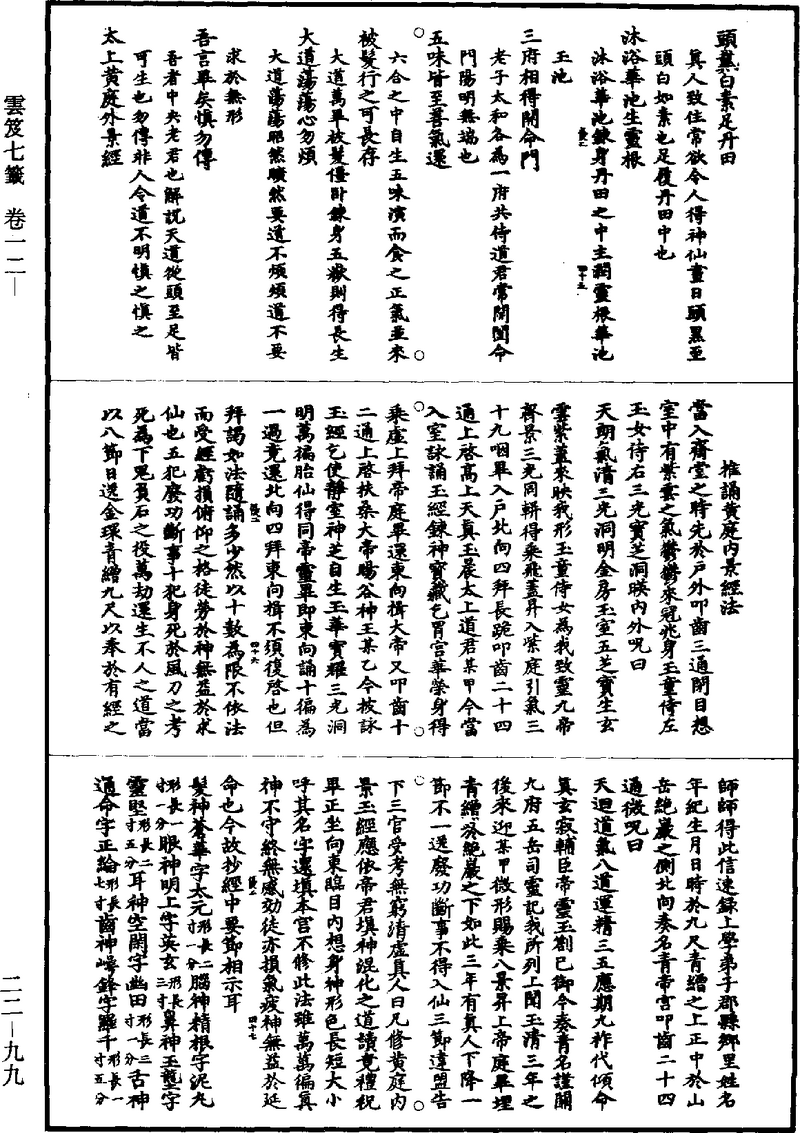 雲笈七籤　卷一二—
二二—九九
頭黑白素足丹田
真人致住常欲令人得神仙晝日頭黑至
頭白如素也足履丹田中也
沐浴華池生靈根
沐浴華池鍊身丹田之中主潤靈根華池
玉池
三府相得開命門
老子太和各為一府共侍道君常開閶命
門陽明無端也
五味皆至善氣還
六合之中自生五味演而食之正氣並來
被髮行之可長存
大道萬畢被髮僵卧鍊身五嶽則得長生
大道蕩蕩心勿煩
大道蕩蕩昭然曠然要道不煩煩道不要
求於無形
吾言畢矣慎勿傳
吾者中央老君也解說天道從頭至足皆
可生也勿傳非人令道不明慎之慎之
太上黃庭外景經
推誦黃庭內景經法
當入齋堂之時先於戶外叩齒三通閉目想
室中有紫雲之氣鬱鬱來冠兆身玉童侍左
玉女侍右三光寶芝洞映內外呪曰
天朗氣清三光洞明金房玉室五芝寶生玄
雲紫蓋來映我形玉童侍女為我致靈九帝
齊景三光同軿得乘飛蓋昇入紫庭引氣三
十九咽畢入戶北向四拜長跪叩齒二十四
通上啓高上天真玉晨太上道君某甲今當
入室詠誦玉經鍊神寶藏乞胃宮華榮身得
乘虛上拜帝庭畢還東向揖大帝又叩齒十
二通上啓扶桑大帝暘谷神王某乙今披詠
玉經乞使靜室神芝自生玉華寶耀三光洞
明萬徧胎仙得同帝靈畢即東向誦十徧為
一過竟還北向四拜東向揖不須復啓也但
拜謁如法隨誦多少然以十數為限不依法
而受經虧損俯仰之格徒勞於神無益於求
仙也五犯廢功斷事十犯身死於風刀之考
死為下鬼負石之役萬劫還生不人之道當
以八節日送金環青繒九尺以奉於有經之
師師得此信速錄上學弟子郡縣鄉里姓名
年紀生月日時於九尺青繒之上正中於山
岳絶巖之側北向奏名青帝宮叩齒二十四
通微呪曰
天迴道氣八道運精三五應期九祚代傾命
真玄寂輔臣帝靈玉劄已御今奏青名謹關
九府五岳司靈記我所列上聞玉清三年之
後來迎某甲微形賜乘八景昇上帝庭畢埋
青繒於絶巖之下如此三年有真人下降一
節不一送廢功斷事不得入仙三節違盟告
下三官受考無窮清虛真人曰凡修黃庭內
景玉經應依帝君填神混化之道讀竟禮祝
畢正坐向東臨目內想身神形色長短大小
呼其名字還填本宮不修此法雖萬萬徧真
神不守終無感効徒亦損氣疲神無益於延
命也今故抄經中要節相示耳
髮神蒼華字太元形長二寸一分腦神精根字泥丸
形長一寸一分眼神明上字英玄形長三寸鼻神玉壟字
靈堅形長二寸五分耳神空閑字幽田形長三寸一分舌神
通命字正綸形長七寸齒神崿鋒字羅千形長一寸五分